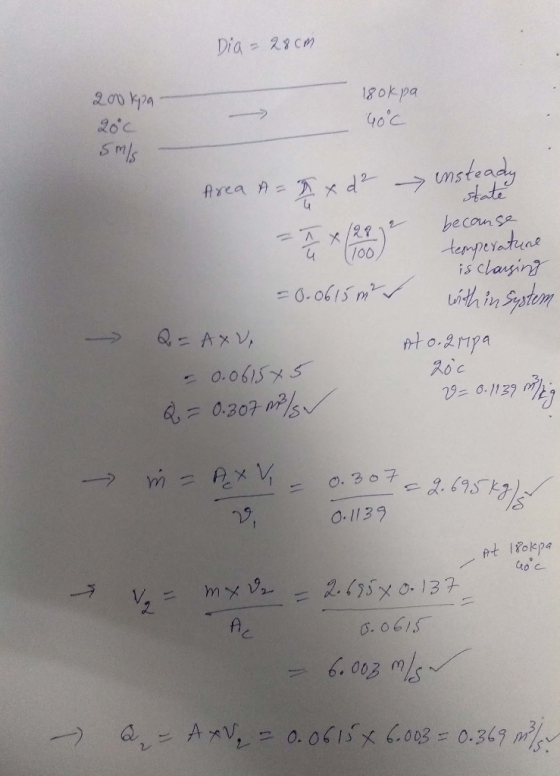 Dia = 28cm
200kpa
20°C
5m/s
180kpa
40°C
Area A = π/4 × d² → unsteady state
because temperature is changing within System
= π/4 × (28/100)²
= 0.0615m² ✓
→ Q = A×V₁
= 0.0615×5
Q = 0.307m³/s ✓
At 0.2Mpa
20°C
v = 0.1139 m³/kg
→ ṁ = Ac × V₁ / v₁ = 0.307 / 0.1139 = 2.695kg/s ✓
→ V₂ = m×v₂ / Ac = 2.695×0.137 / 0.0615 =
At 180kpa
40°C
= 6.003 m/s ✓
→ Q₂ = A×V₂ = 0.0615×6.003 = 0.369 m³/s ✓